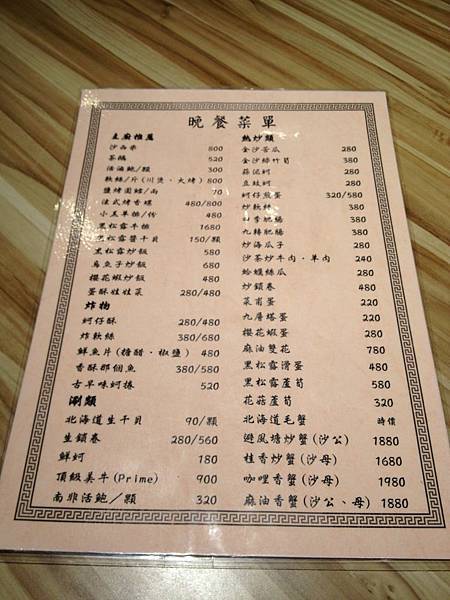 晚餐菜單
主廚推薦
沙西米 800
茶鵝 520
活油鮑/顆 300
軟絲/片(川燙、火烤) 800
鹽烤圓鱈/兩 70
法式烤香螺 480/800
小羔羊排/份 480
黑松露牛排 1680
黑松露醬干貝 150/顆
黑松露炒飯 580
烏魚子炒飯 680
櫻花蝦炒飯 480
蛋酥娃娃菜 280/480
炸物
蚵仔酥 280/480
炸軟絲 380/680
鮮魚片(糖醋、椒鹽) 480
香酥那個魚 380/580
古早味蚵捲 520
涮類
北海道生干貝 90/顆
生鎖卷 280/560
鮮蚵 180
頂級美牛(Prime) 900
南非活鮑/顆 320
熱炒類
金沙苦瓜 280
金沙綠竹筍 380
蒜泥蚵 280
豆豉蚵 280
蚵仔煎蛋 320/580
炒軟絲 380
肥腸 380
九轉肥腸 380
炒海瓜子 280
沙茶炒牛肉、羊肉 240
蛤蠣絲瓜 280
炒鎖卷 480
菜甫蛋 220
九層塔蛋 220
櫻花蝦蛋 280
麻油雙花 780
黑松露滑蛋 480
黑松露蘆筍 580
花菇蘆筍 320
北海道毛蟹 時價
避風塘炒蟹(沙公) 1880
桂香炒蟹(沙母) 1680
咖哩香蟹(沙母) 1980
麻油香蟹(沙公、母) 1880